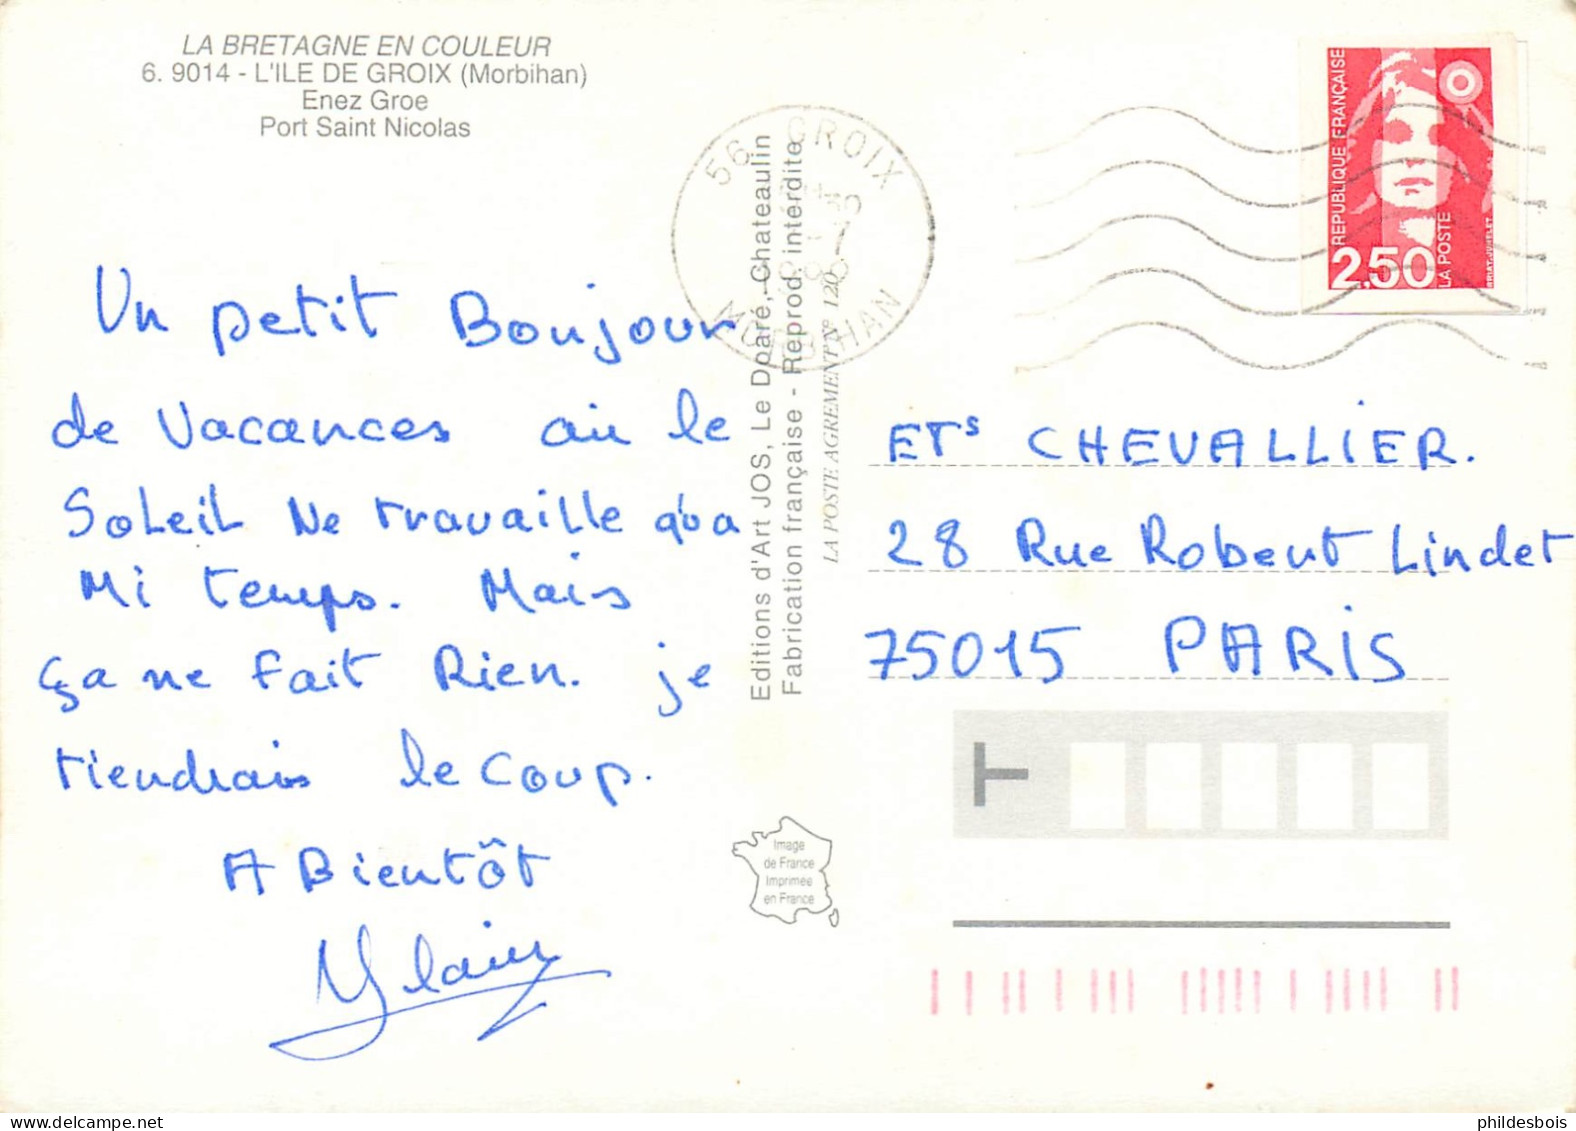 LA BRETAGNE EN COULEUR
6. 9014 - L'ILE DE GROIX (Morbihan)
Enez Groe
Port Saint Nicolas
Un petit Bonjour
de Vacances où le
Soleil Ne travaille q'ua
Mi temps. Mais
ça ne fait Rien. je
tiendrais le coup.
A Bientôt
Editions d'Art JOS, Le Doaré, Chateaulin
Fabrication française - Reprod. interdite
LA POSTE AGREMENT N° 120
56 GROIX
MORBIHAN
REPUBLIQUE FRANÇAISE
2,50
LA POSTE
ETs CHEVALLIER.
28 Rue Robert Lindet
75015 PARIS
T
Image
de France
Imprimée
en France
phildesbois